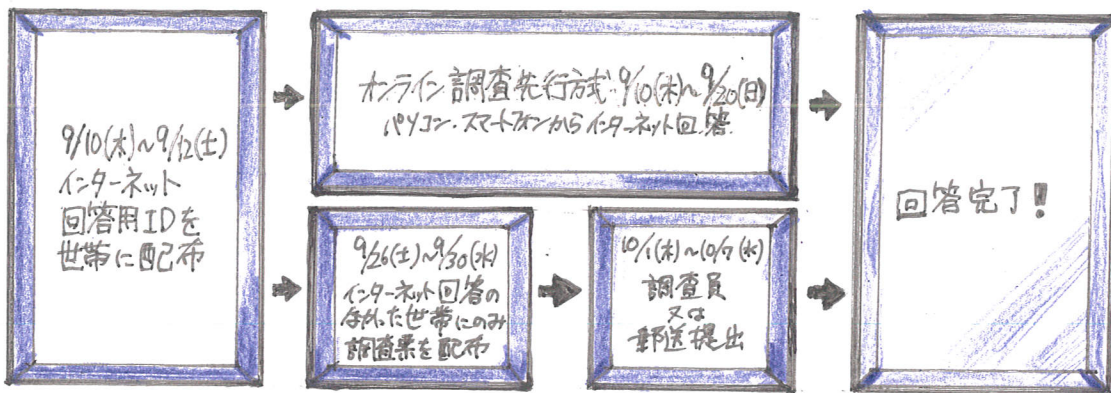 9/10(木)~9/12(土)
インターネット
回答用IDを
世帯に配布
オンライン調査先行方式・9/10(木)~9/20(日)
パソコン・スマートフォンからインターネット回答
9/26(土)~9/30(水)
インターネット回答の
なかった世帯にのみ
調査票を配布
10/1(木)~10/7(水)
調査員
又は
郵送提出
回答完了!